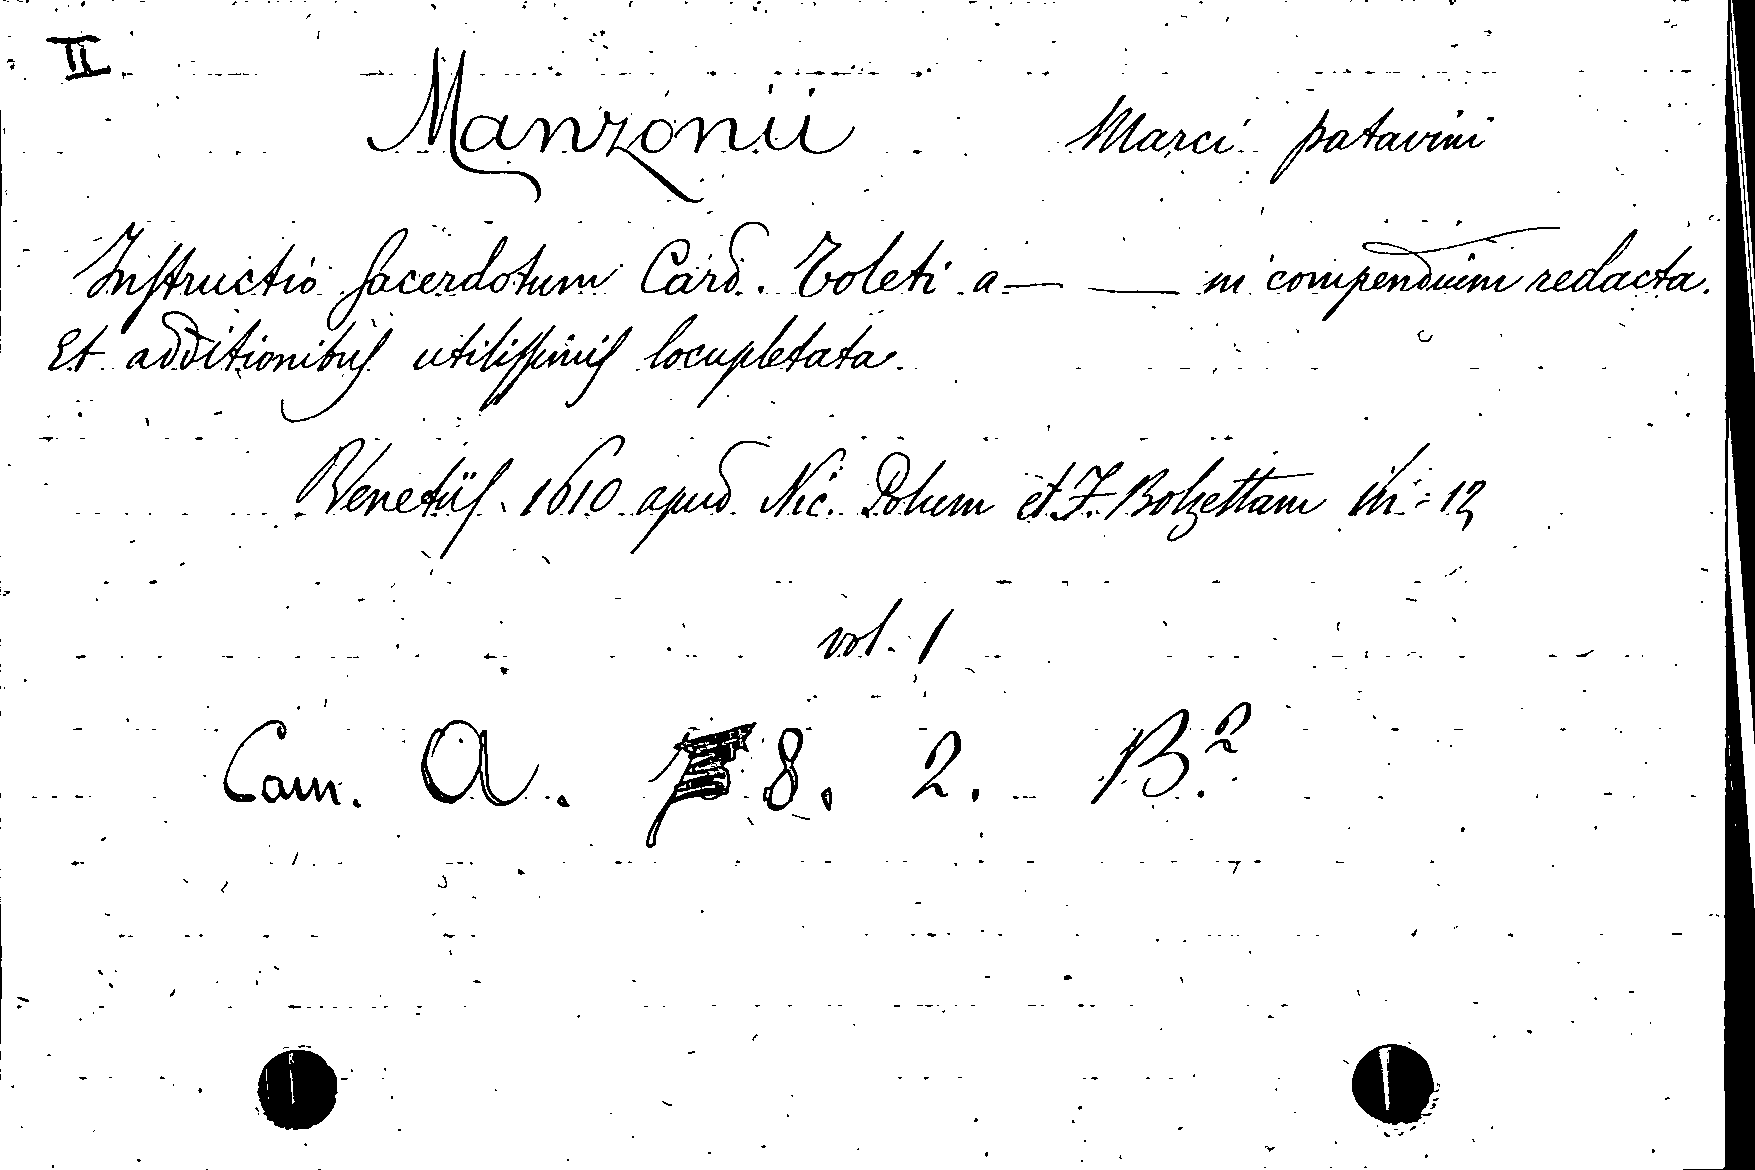 II
Manzonii Marci patavini
Instructio sacerdotum Card. Toleti a — — in compendium redacta.
Et additionibus utilissimis locupletata.
Venetiis 1610 apud Nic. Polum et F. Bolzettam in = 12
vol. 1
Cam. A. 8. 2. B.2